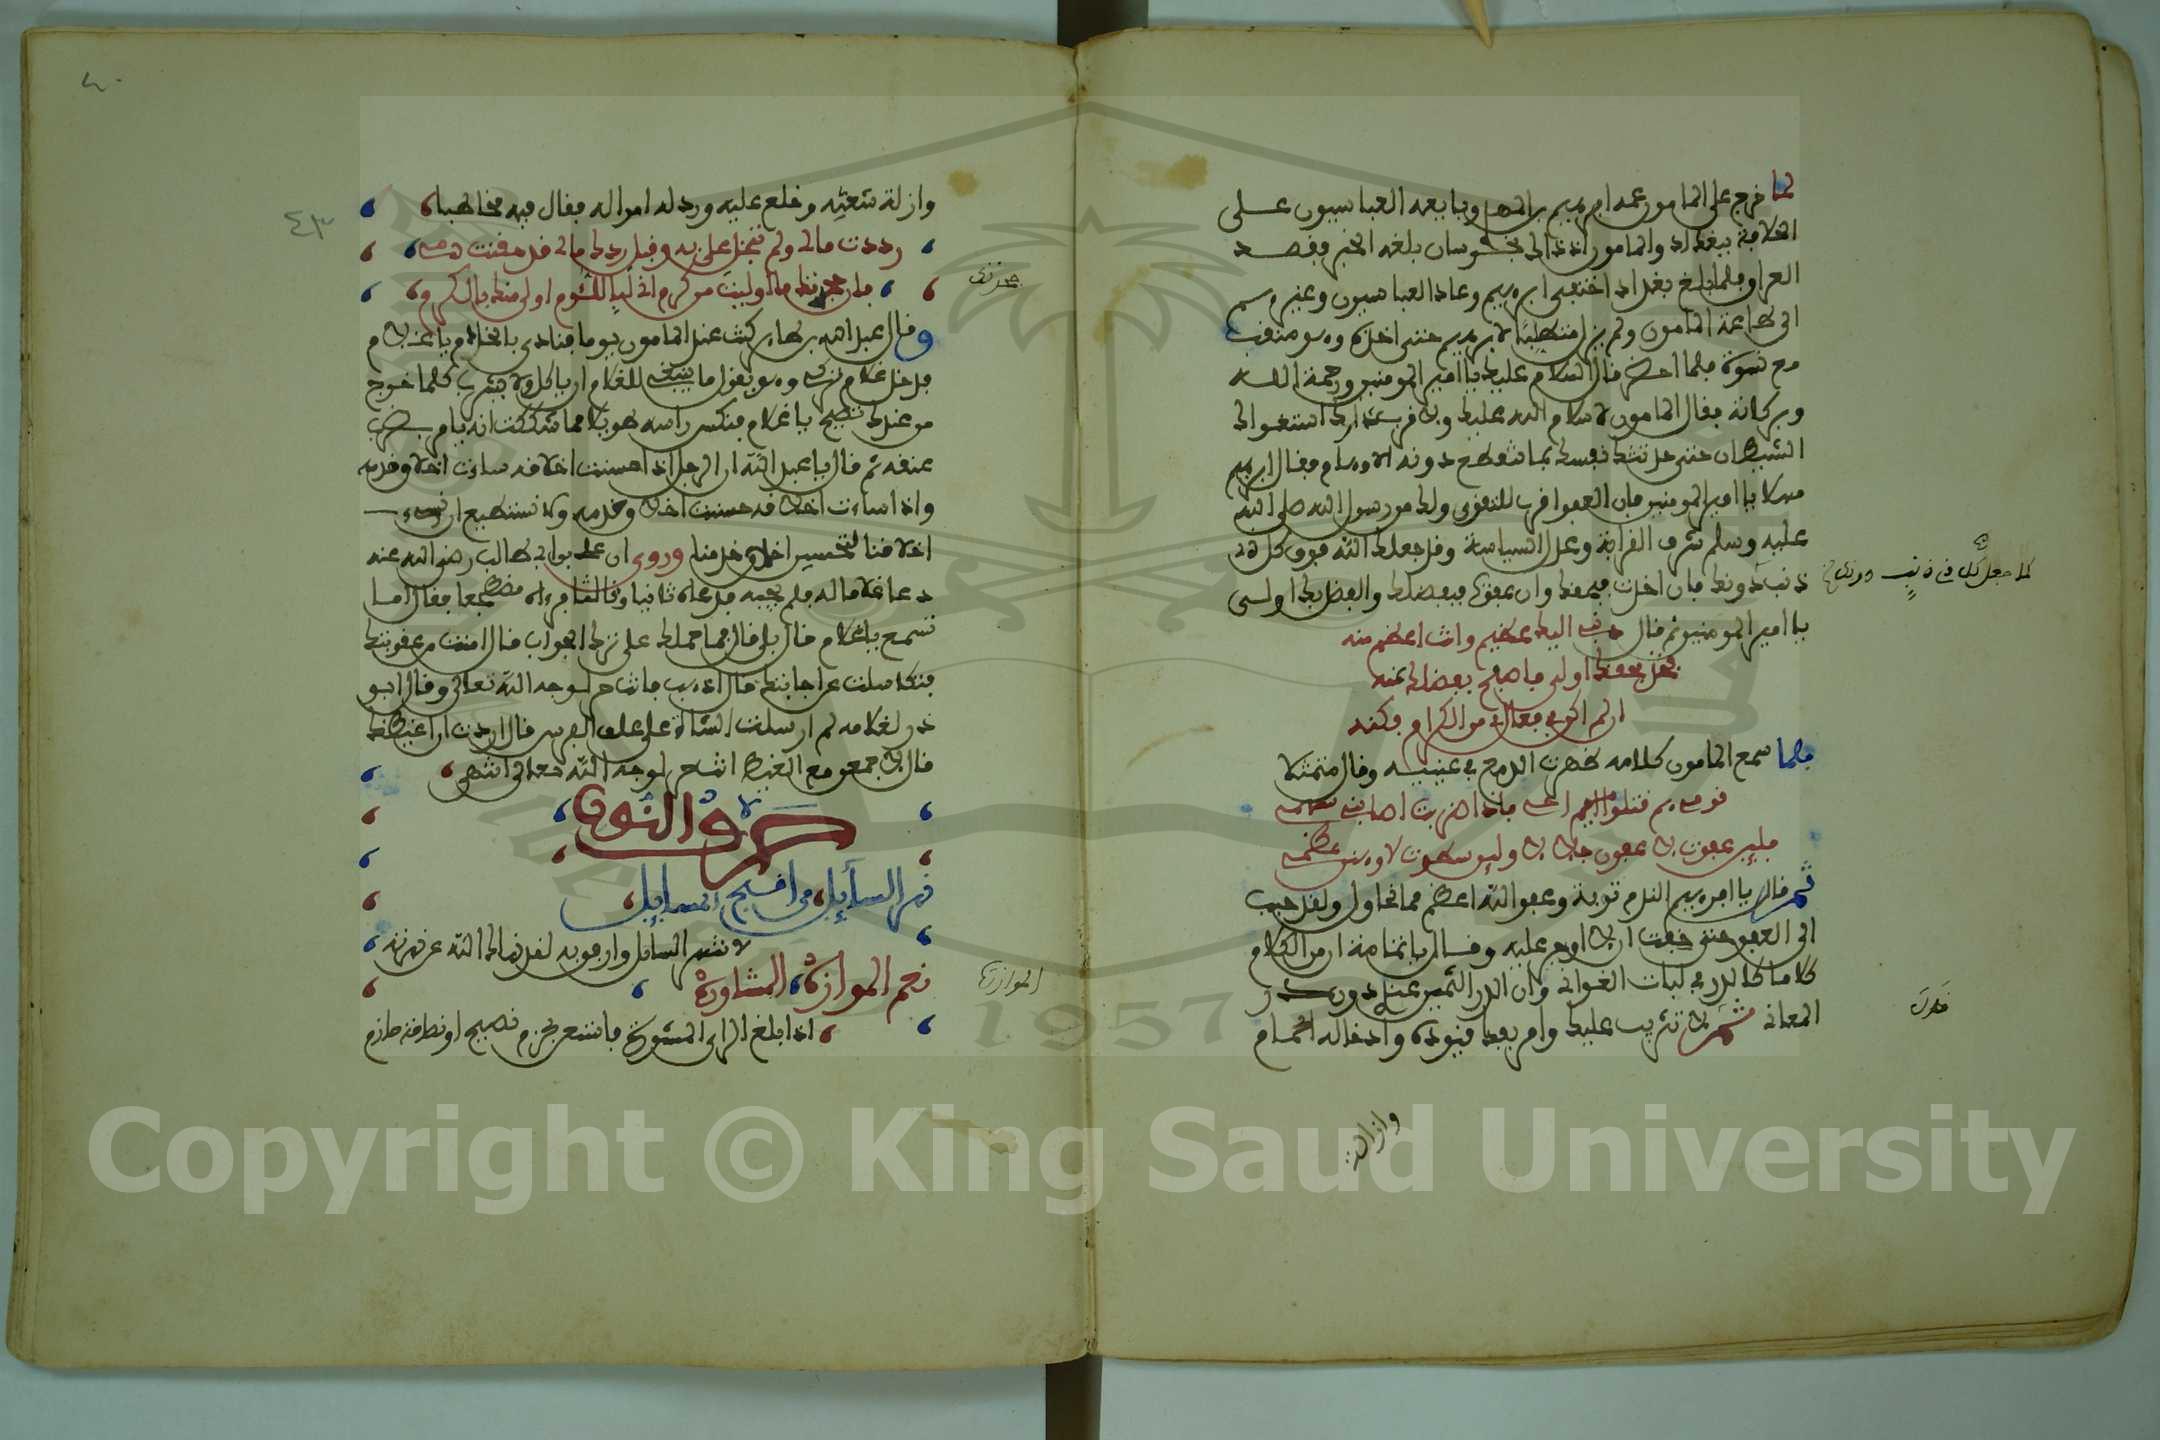 لما خرج على المامون عمه ابرهيم بن المهدي وبايعه العباسيون على
الخلافة ببغداد والمامون اذ ذاك بخراسان بلغه الخبر فقصد
العراق فلما بلغ بغداد اختفى ابرهيم وعاد العباسيون وغيرهم
الى طاعة المامون ولم يزل متطلبا لابرهيم حتى اخذه وهو متنقب
مع نسوة فلما احضر قال السلام عليك يا امير المومنين ورحمة الله
وبركاته فقال المامون لا سلام الله عليك ولا قرب دارك استغواك
الشيطان حتى حدثتك نفسك بما تنقطع دونه الاوهام فقال ابرهيم
مهلا يا امير المومنين فان العفو اقرب للتقوى ولك من رسول الله صلى الله
عليه وسلم شرف القرابة وعدل السياسة وقد جعلك الله فوق كل ذي
ذنب دونك فان اخذت فبحقك وان عفوت فبفضلك والفضل بك اولى
يا امير المومنين ثم قال ذنبي اليك عظيم وانت اعظم منه
فخذ بحقك اولى فاصفح بفضلك عنه
ان لم اكن في فعالي من الكرام فكنه
فلما سمع المامون كلامه ظهرت الدمع في عينيه وقال متمثلا
قومي هم قتلوا اميم اخي فاذا رميت اصابني سهمي
فلين عفوت لاعفون جللا ولين سطوت لاوهنن عظمي
ثم قال يا ابرهيم الندم توبة وعفو الله اعظم مما تحاول ولقد حبب
الى العفو حتى خفت ان لا اوجر عليه وقال يا ثمامة ان من الكلام
كلاما كالدر في لبات الغواني وان الدر الثمين عند دون
المعاني ثم لا تثريب عليك وامر بفك قيوده وادخاله الحمام
وازالة
وازلة شعثه وخلع عليه ورد له امواله فقال فيه مخاطبا
رددت مالي ولم تبخل علي به وقبل ردك مالي قد حقنت دمي
فان جحدتك ما اوليت من كرم اني الى اللوم اولى منك بالكرم
وقال عبد الله بن طاهر كنت عند المامون يوما فنادى بالخادم يا غلام
فدخل غلام تركي وهو يقول ما ينبغي للغلام ان ياكل ولا يشرب كلما خرج
من عندك تصيح يا غلام فنكس راسه طويلا فما شككت انه يامر بضرب
عنقه ثم قال يا عبد الله ان الرجل اذا احسنت اخلاقه ساءت اخلاق خدمه
واذا ساءت اخلاقه حسنت اخلاق خدمه ولا نستطيع ان نسيء
اخلاقنا لتحسين اخلاق خدمنا وروي ان علي بن ابي طالب رضي الله عنه
دعا غلاما له فلم يجبه فدعاه ثانيا وثالثا فرءاه مضطجعا فقال اما
تسمع يا غلام قال بلى قال فما حملك على ترك الجواب قال امنت من عقوبتك
فتكاسلت عن اجابتك قال اذهب فانت حر لوجه الله تعالى وقال ابو
ذر لغلامه لم ارسلت الشاة على علف الفرس قال اردت ان اغيظك
قال لاجمعن مع الغيظ انت حر لوجه الله تعالى انتهى
حرف النون
نهر السايل، من اقبح المسايل،
لا تنهر السايل وارفق به لقد نهاك الله عن نهره
نعم الموازرة، المشاورة
اذا بلغ الراي المشورة فاستعن بحزم نصيح او نصاحة حازم
الموازرة
٤٣
Copyright © King Saud University
1957